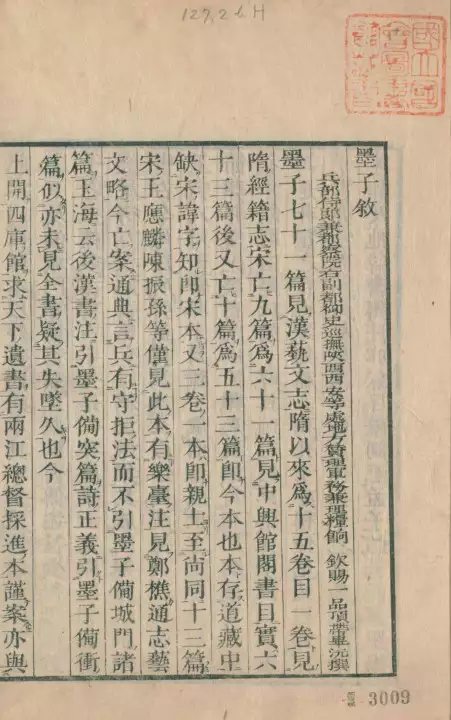 127,26H
墨子敘
兵部侍郎兼都察院右副都御史巡撫陝西西安等處地方贊理軍務兼理糧餉 欽賜一品頂帶畢沅撰
墨子七十一篇見漢藝文志隋以來爲十五卷目一卷見
隋經籍志宋亡九篇爲六十一篇見中興館閣書目實六
十三篇後又亡十篇爲五十三篇卽今本也本存道藏中
缺宋諱字知卽宋本又三卷一本卽親士至尚同十三篇
宋王應麟陳振孫等僅見此本有樂臺注見鄭樵通志藝
文略今亡案通典言兵有守拒法而不引墨子備城門諸
篇玉海云後漢書注引墨子備突篇詩正義引墨子備衝
篇似亦未見全書疑其失墜久也今
上開四庫館求天下遺書有兩江總督採進本謹案亦與
3009